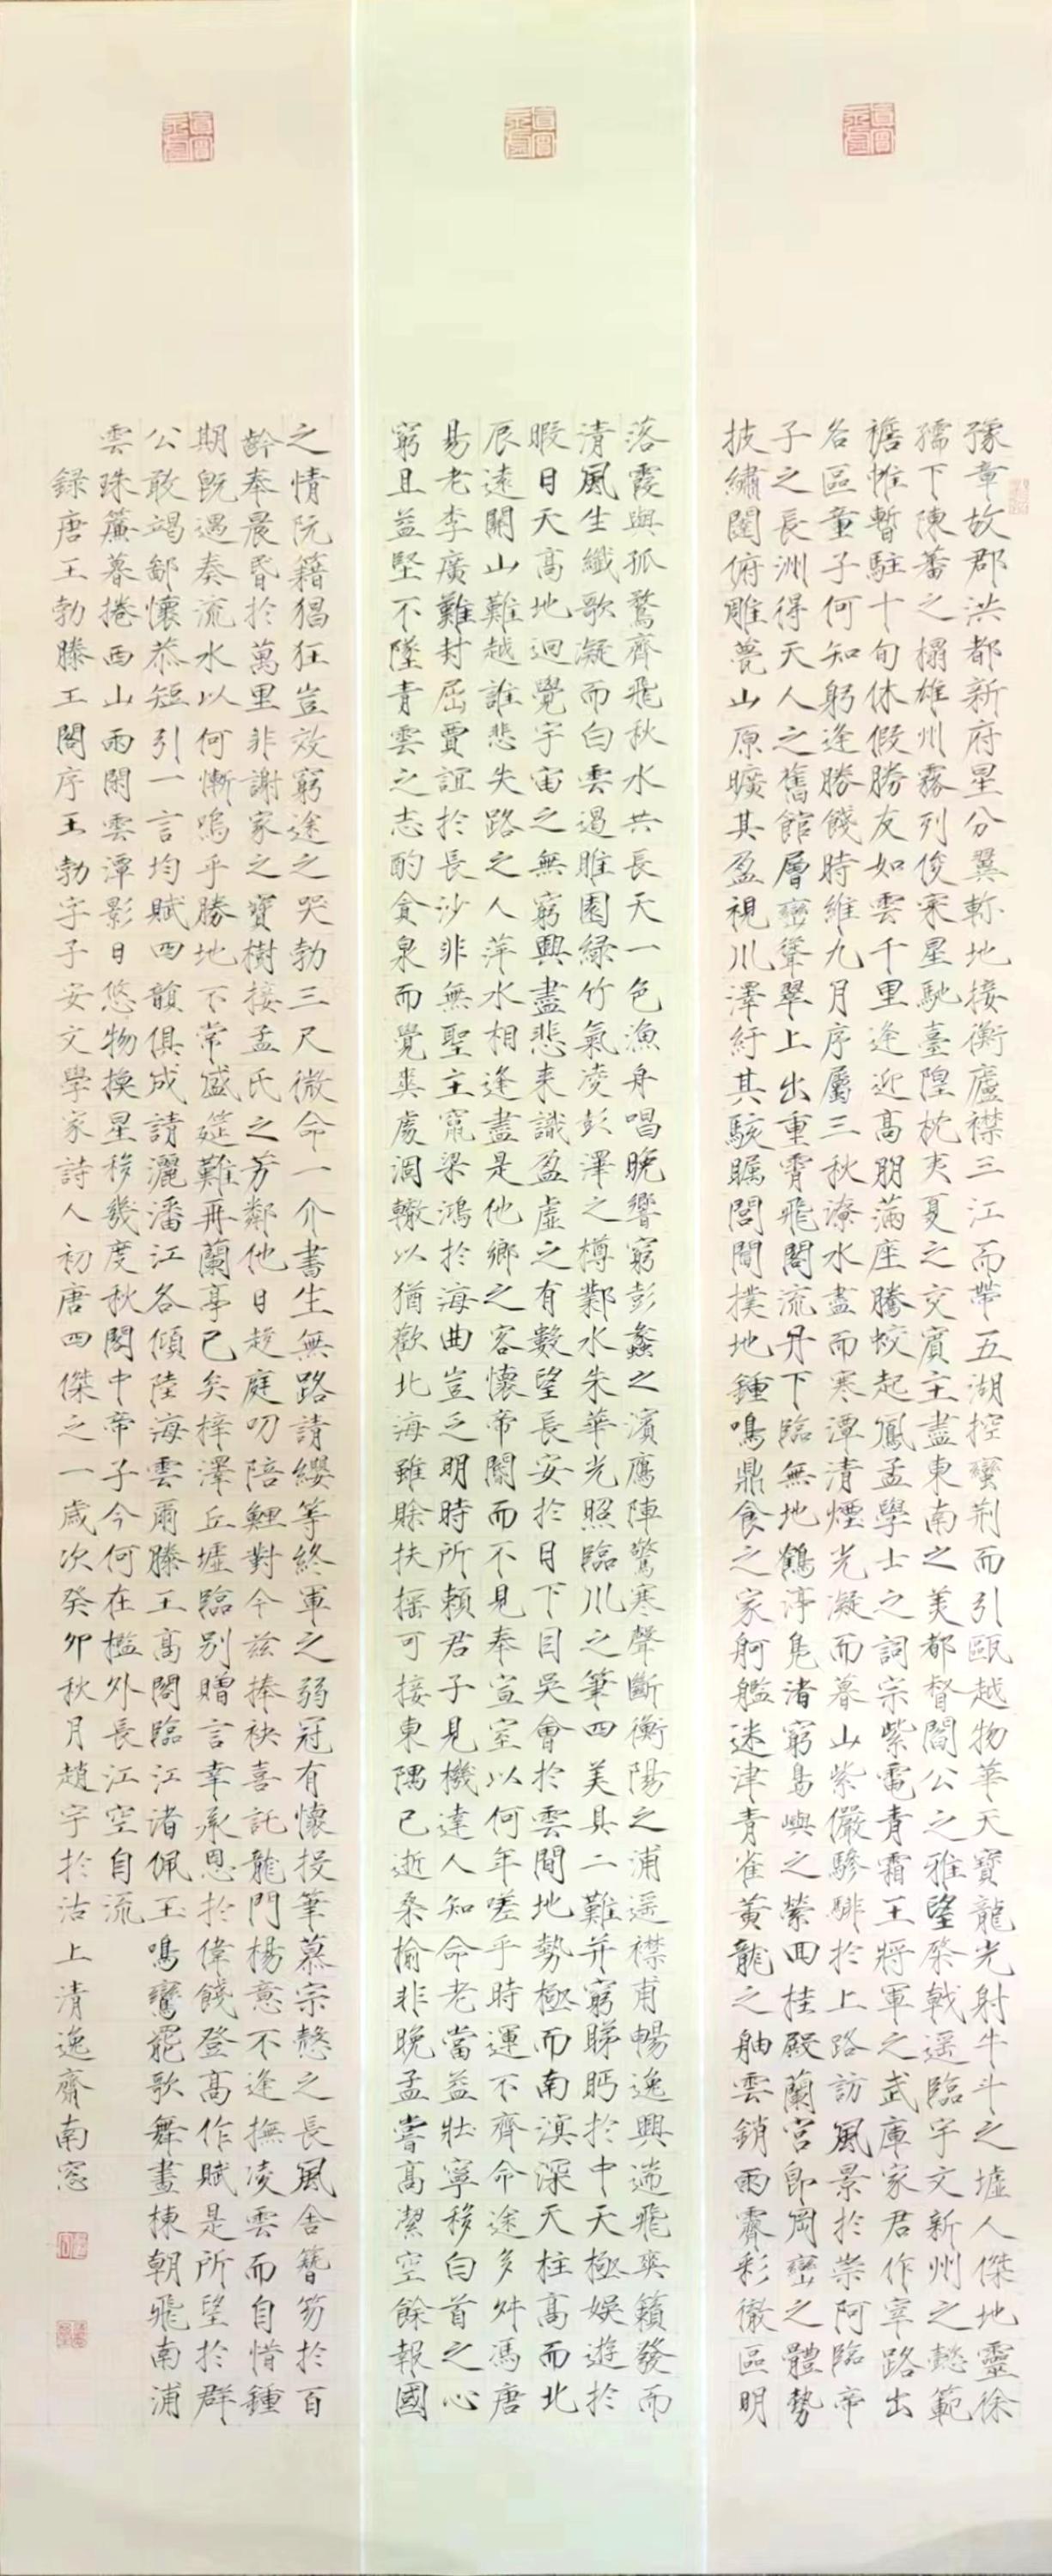 豫章故郡洪都新府星分翼軫地接衡廬襟三江而帶五湖控蠻荊而引甌越物華天寶龍光射牛斗之墟人傑地靈徐
孺下陳蕃之榻雄州霧列俊寀星馳臺隍枕夷夏之交賓主盡東南之美都督閻公之雅望棨戟遥臨宇文新州之懿範
襜帷暫駐十旬休假勝友如雲千里逢迎高朋滿座騰蛟起鳳孟學士之詞宗紫電青霜王將軍之武庫家君作宰路出
名區童子何知躬逢勝餞時維九月序屬三秋潦水盡而寒潭清煙光凝而暮山紫儼驂騑於上路訪風景於崇阿臨帝
子之長洲得天人之舊館層巒聳翠上出重霄飛閣流丹下臨無地鶴渟鳧渚窮島嶼之縈回桂殿蘭宮即岡巒之體勢
披繡闥俯雕甍山原曠其盈視川澤紆其駭矚閭閻撲地鍾鳴鼎食之家舸艦迷津青雀黃龍之舳雲銷雨霽彩徹區明
落霞與孤鶩齊飛秋水共長天一色漁舟唱晚響窮彭蠡之濱鴈陣驚寒聲斷衡陽之浦遥襟甫暢逸興遄飛爽籟發而
清風生纖歌凝而白雲遏睢園綠竹氣凌彭澤之樽鄴水朱華光照臨川之筆四美具二難并窮睇眄於中天極娛遊於
暇日天高地迥覺宇宙之無窮興盡悲来識盈虛之有數望長安於日下目吳會於雲間地勢極而南溟深天柱高而北
辰遠關山難越誰悲失路之人萍水相逢盡是他鄉之客懷帝閽而不見奉宣室以何年嗟乎時運不齊命途多舛馮唐
易老李廣難封屈賈誼於長沙非無聖主竄梁鴻於海曲豈乏明時所賴君子見機達人知命老當益壯寧移白首之心
窮且益堅不墜青雲之志酌貪泉而覺爽處涸轍以猶歡北海雖賒扶搖可接東隅已逝桑榆非晚孟嘗高潔空餘報國
之情阮籍猖狂豈效窮途之哭勃三尺微命一介書生無路請纓等終軍之弱冠有懷投筆慕宗愨之長風舍簪笏於百
齡奉晨昏於萬里非謝家之寶樹接孟氏之芳鄰他日趨庭叨陪鯉對今兹捧袂喜託龍門楊意不逢撫凌雲而自惜鍾
期既遇奏流水以何慚嗚乎勝地不常盛筵難再蘭亭已矣梓澤丘墟臨別贈言幸承恩於偉餞登高作賦是所望於群
公敢竭鄙懷恭短引一言均賦四韻俱成請灑潘江各傾陸海雲爾滕王高閣臨江渚佩玉鳴鸞罷歌舞畫棟朝飛南浦
雲珠簾暮捲西山雨閑雲潭影日悠物換星移幾度秋閣中帝子今何在檻外長江空自流
録唐王勃滕王閣序王勃字子安文學家詩人初唐四傑之一歲次癸卯秋月趙宇於沽上清逸齋南窓